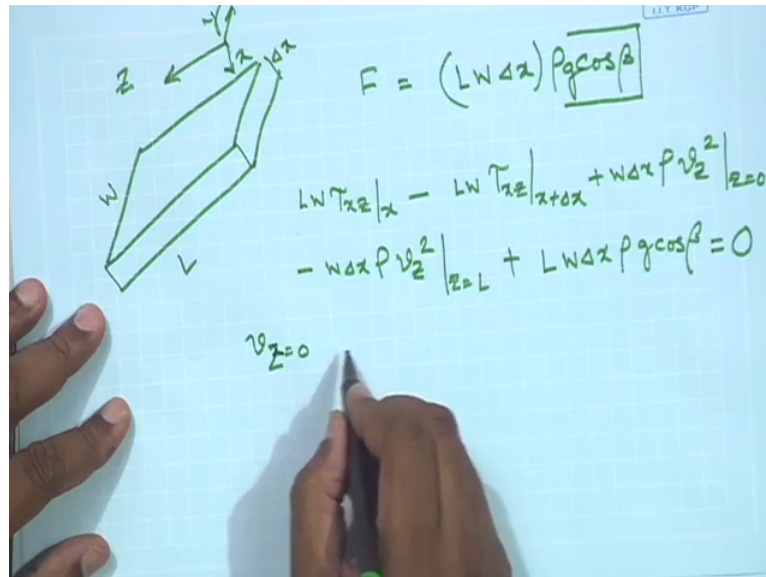 I.I.T. KGP
-Y
Z
x
Δx
W
L
F = (LWΔx) ρg cosβ
LW τxz|x − LW τxz|x+Δx + WΔx ρ vz²|z=0
− WΔx ρ vz²|z=L + LWΔx ρ g cosβ = 0
vz=0